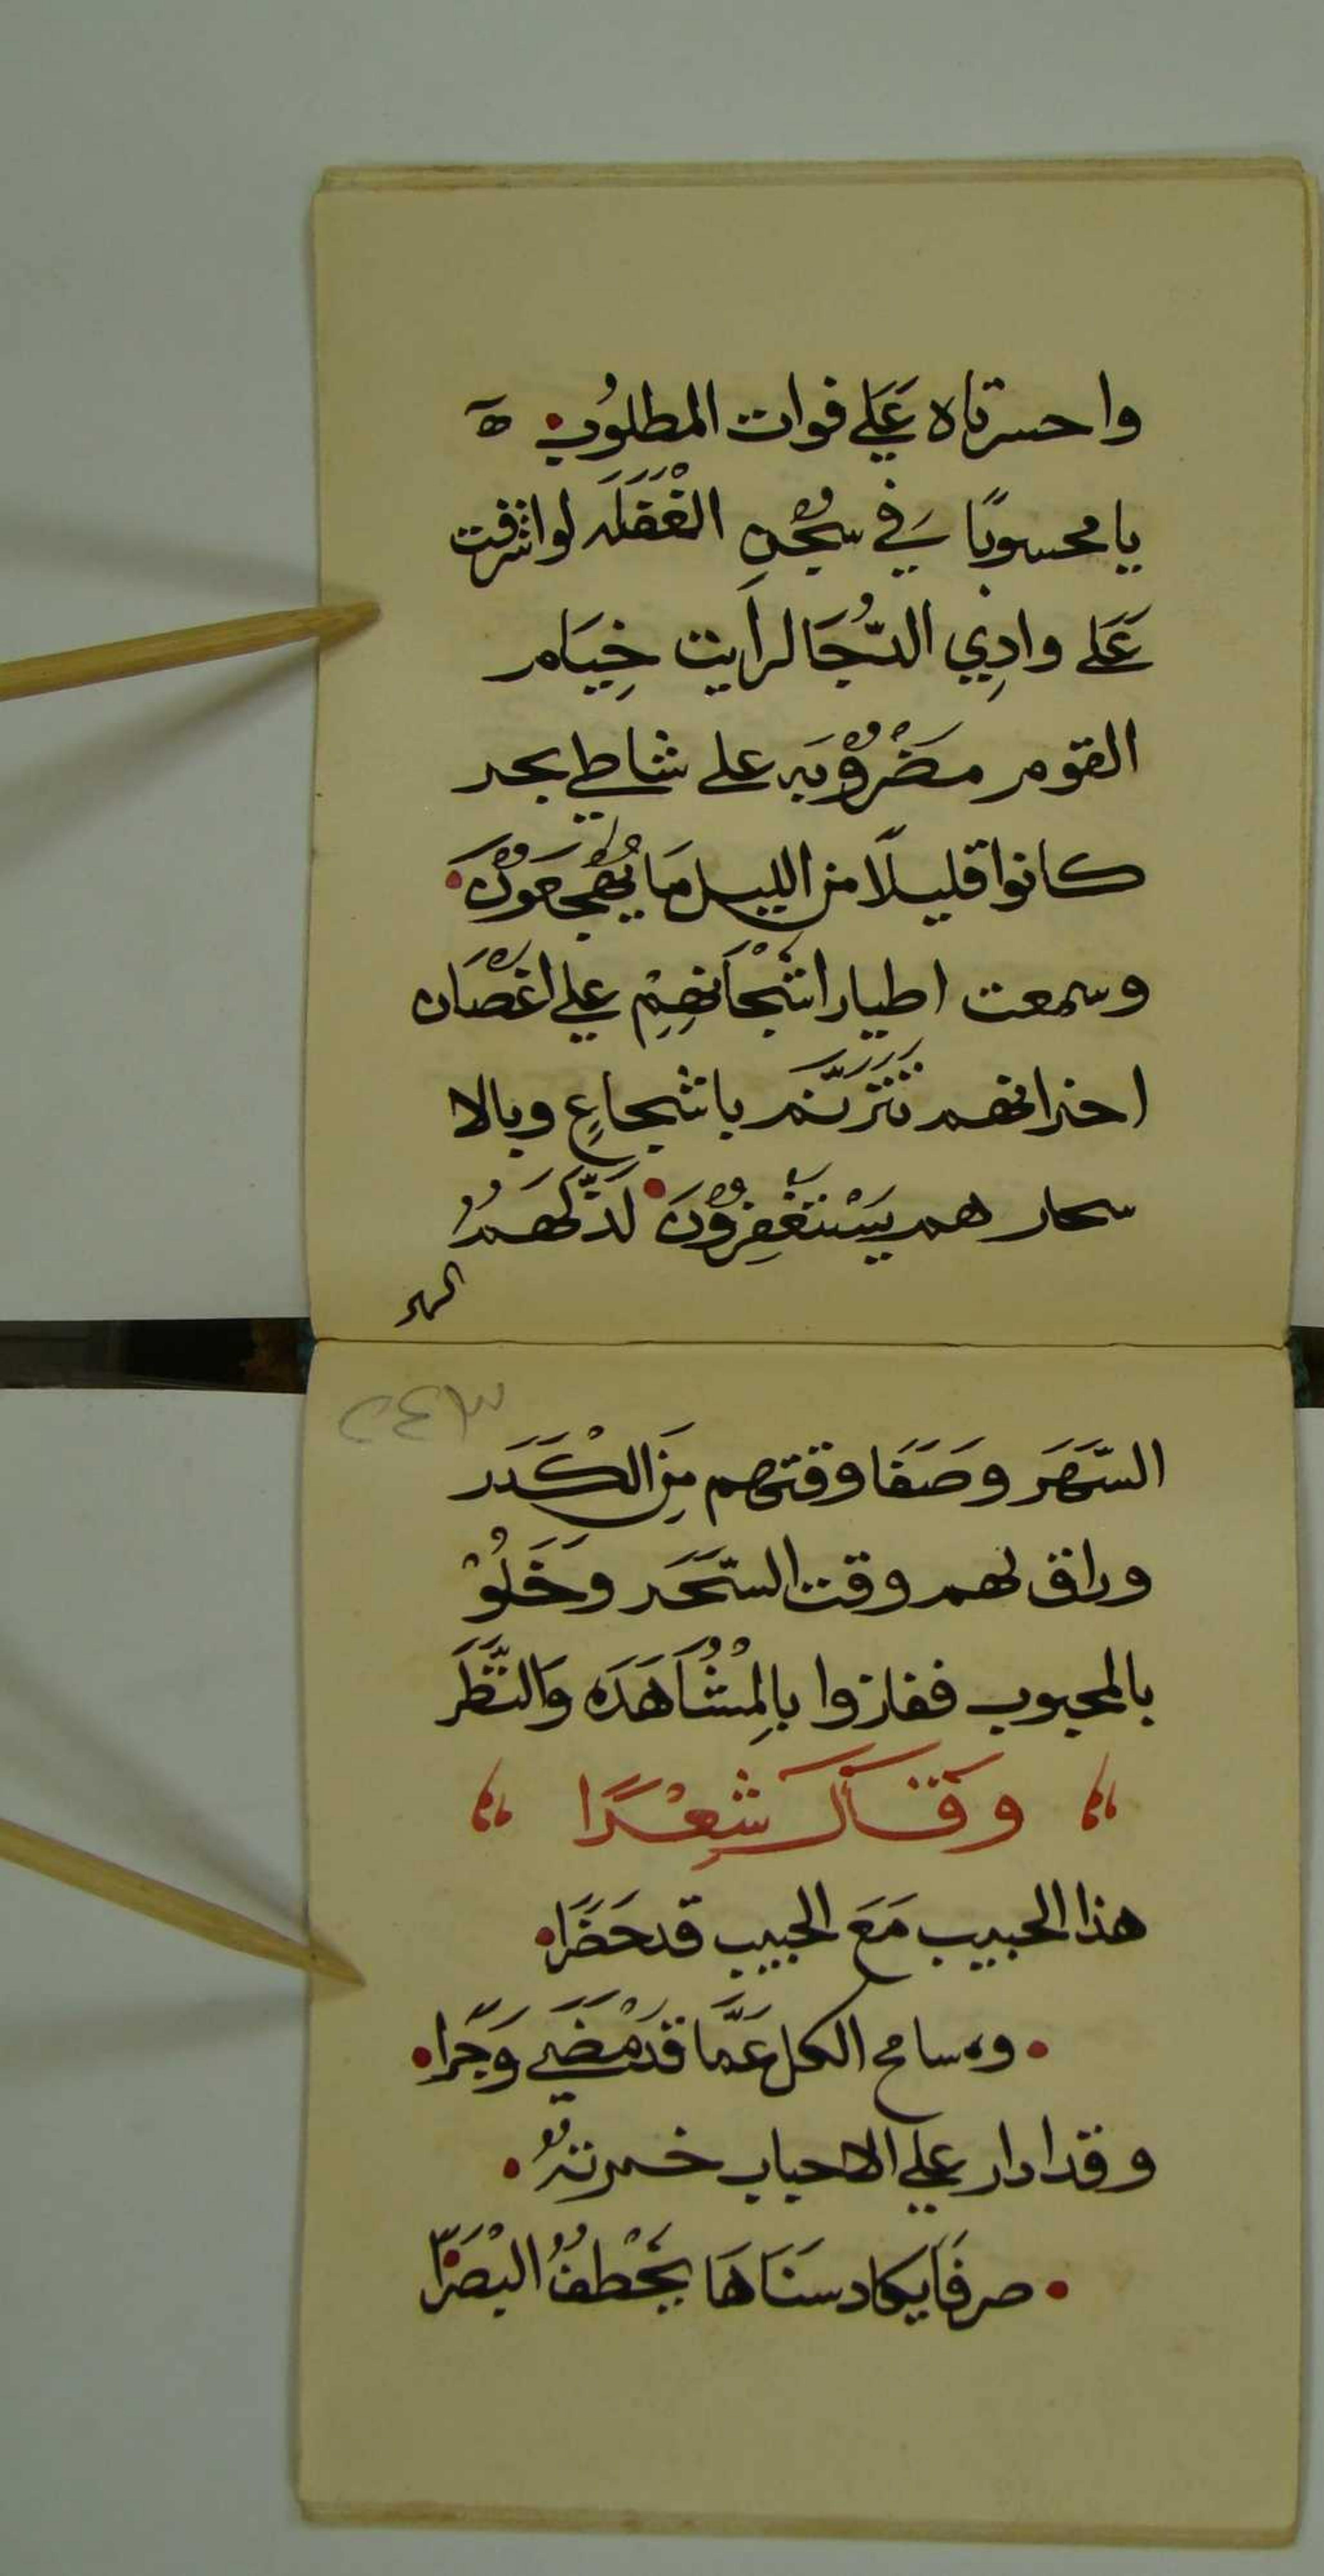 واحسرتاه عَلَي فوات المطلوُب ه
يا محسوبًا في سجْنِ الغَفْلَه لو اشرفت
عَلَى وادِي الدُّجَا لرأيت خِيَام
القوم مَضْرُوْبَه على شاطي بحر
كانوا قليلًا من الليل مَا يَهْجَعُوْنَ
وسمعت اطيار اشْجَانهِمْ علي اغْصَان
احزانهم تَتَرَنَّم باشجاعٍ وبالا
سحار هم يَسْتَغْفِرُوْنَ لَذَّ لَهُمُ
السهر
٢٤٣
السَّهَر وَصَفَا وقتهم مِنَ الْكَدَر
وراق لهم وقت السَّحَر وَخَلُوْ
بالمحبوب ففازوا بِالْمُشَاهَدَه وَالنَّظَر
وَقَالَ شِعْرًا
هذا الحبيب مَعَ الحبيب قد حَضَرَا
وه سامح الكل عَمَّا قَدْ مَضَي وَجَرا
وقد ادار علي الاحباب خمرتهُ
صرفًا يكاد سَنَاهَا يَخْطفُ الْبَصَرَا